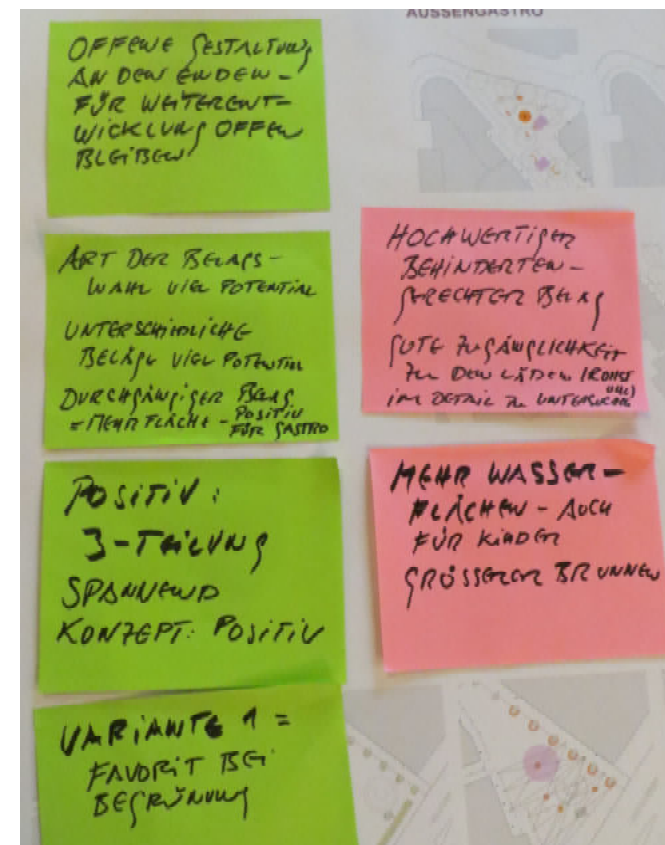 AUSSENGASTRO
OFFENE GESTALTUNG
AN DEN ENDEN –
FÜR WEITERENT-
WICKLUNG OFFEN
BLEIBEN
ART DER BELAGS-
WAHL VIEL POTENTIAL
UNTERSCHIEDLICHE
BELÄGE VIEL POTENTIAL
DURCHGÄNGIGER BELAG
= MEHR FLÄCHE – POSITIV
FÜR GASTRO
POSITIV:
3-TEILUNG
SPANNEND
KONZEPT: POSITIV
VARIANTE 1 =
FAVORIT BEI
BEGRÜNUNG
HOCHWERTIGER
BEHINDERTEN-
GERECHTER BELAG
GUTE ZUGÄNGLICHKEIT
ZU DEN LÄDEN
IM DETAIL ZU
MEHR WASSER-
FLÄCHEN – AUCH
FÜR KINDER
GRÖSSERER BRUNNEN